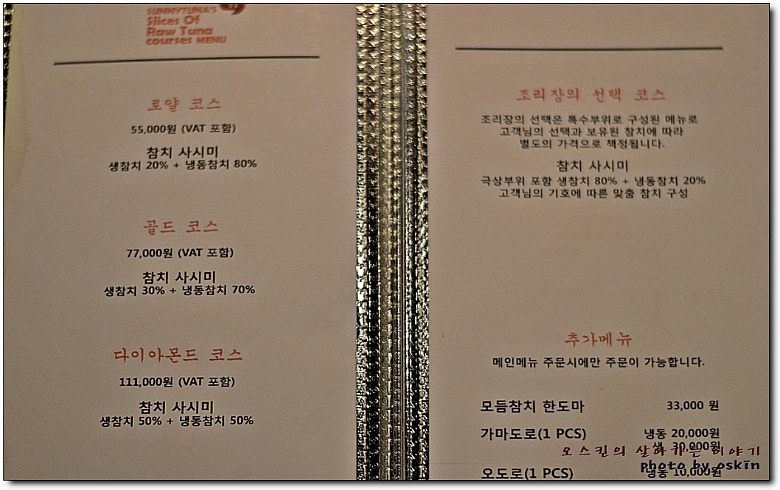 SUNNYTUNA'S
Slices Of
Raw Tuna
courses MENU
로얄 코스
55,000원 (VAT 포함)
참치 사시미
생참치 20% + 냉동참치 80%
골드 코스
77,000원 (VAT 포함)
참치 사시미
생참치 30% + 냉동참치 70%
다이아몬드 코스
111,000원 (VAT 포함)
참치 사시미
생참치 50% + 냉동참치 50%
조리장의 선택 코스
조리장의 선택은 특수부위로 구성된 메뉴로
고객님의 선택과 보유된 참치에 따라
별도의 가격으로 책정됩니다.
참치 사시미
극상부위 포함 생참치 80% + 냉동참치 20%
고객님의 기호에 따른 맞춤 참치 구성
추가메뉴
메인메뉴 주문시에만 주문이 가능합니다.
모듬참치 한도마 33,000 원
가마도로(1 PCS) 냉동 20,000원
생 30,000원
오도로(1 PCS) 냉동 10,000원
오스킨의 살아가는 이야기
photo by oskin